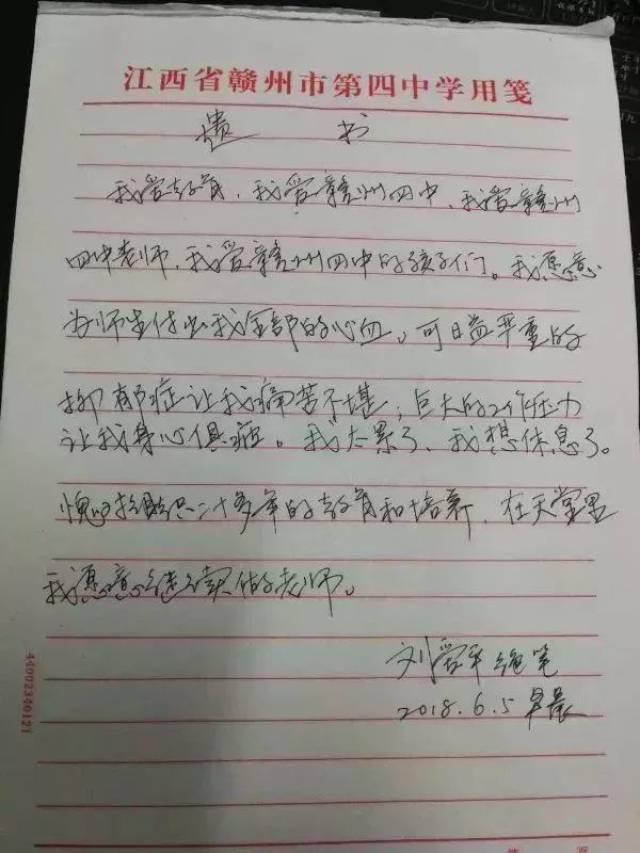 江西省赣州市第四中学用笺
遗书
我爱教育、我爱赣州四中、我爱赣州
四中老师、我爱赣州四中的孩子们。我愿意
为师生付出我全部的心血。可日益严重的
抑郁症让我痛苦不堪；巨大的工作压力
让我身心俱疲。我太累了、我想休息了。
愧对组织二十多年的教育和培养、在天堂里
我愿意继续做老师。
刘爱平绝笔
2018.6.5早晨
44002340121